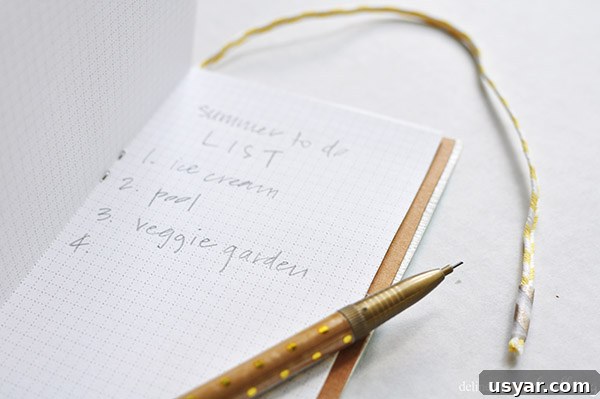 summer to do
LIST
1. ice cream
2. pool
3. veggie garden
4.
usyar.com